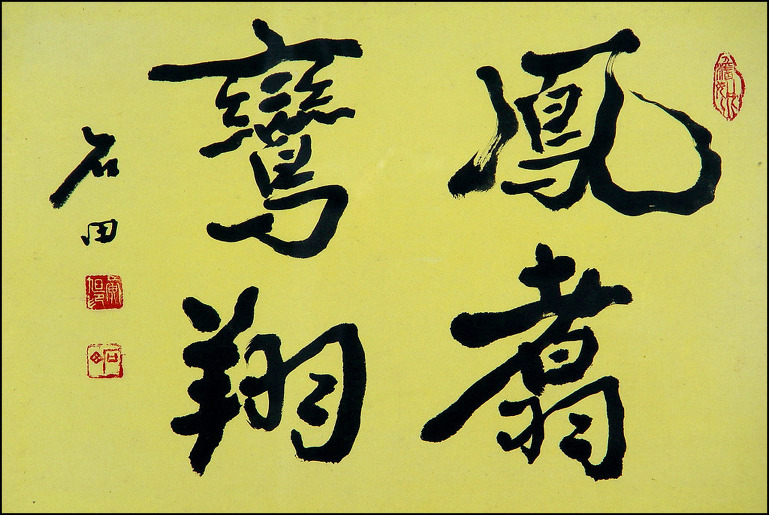 鳳翥
鸞翔
石田